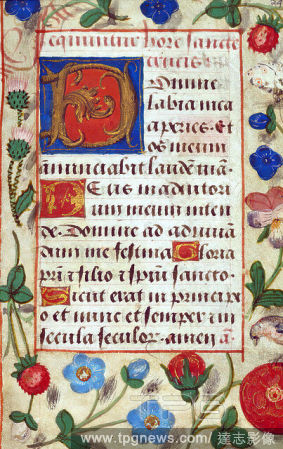 equuntur hore sancte
crucis
Domine
labia mea
aperies. Et
os meum
annuntiabit laudem tuā.
Deus in adiutori
um meum inten
de. Domine ad adiuuā
dum me festina Gloria
prī et filio et spūi sancto.
Sicut erat in principio
o et nunc et semper et in
secula seculor. amen. a
www.tpgnews.com/達志影像